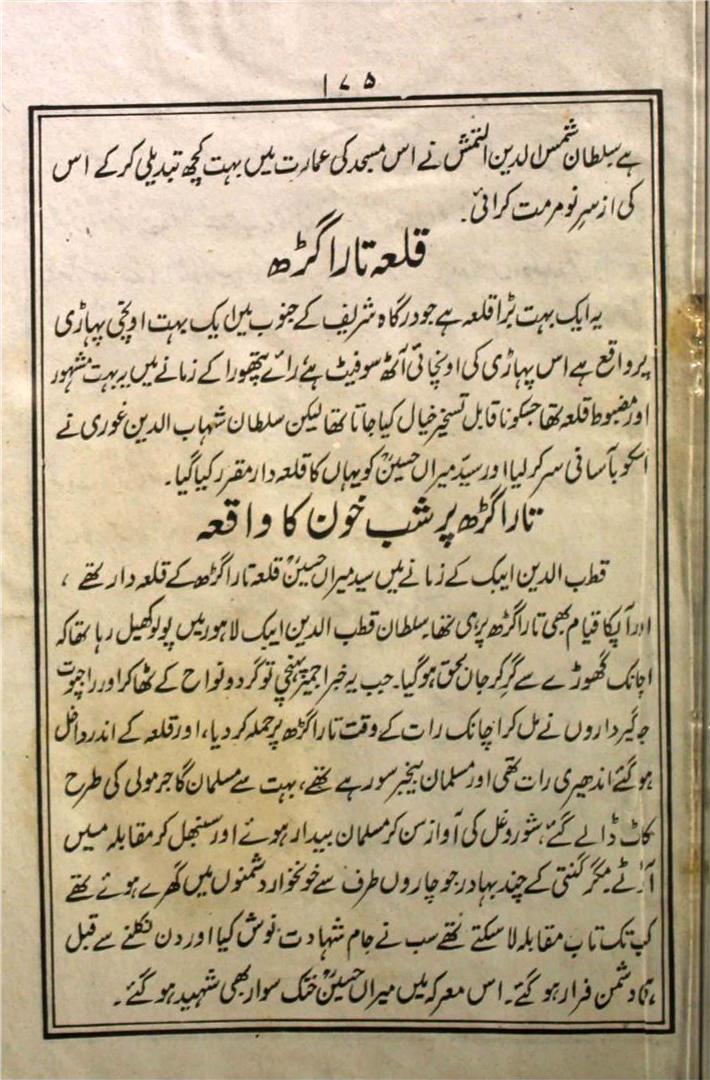 ۱۷۵
ہے سلطان شمس الدین التمش نے اس مسجد کی عمارت میں بہت کچھ تبدیلی کر کے اس
کی از سرِ نو مرمت کرائی۔
قلعہ تارا گڑھ
یہ ایک بہت بڑا قلعہ ہے جو درگاہ شریف کے جنوب میں ایک بہت اونچی پہاڑی
پر واقع ہے اس پہاڑی کی اونچائی آٹھ سو فیٹ ہے رائے پتھورا کے زمانے میں یہ بہت مشہور
اور مضبوط قلعہ تھا جسکو ناقابل تسخیر خیال کیا جاتا تھا لیکن سلطان شہاب الدین غوری نے
اسکو بآسانی سر کر لیا اور سیّد میراں حسینؒ کو یہاں کا قلعہ دار مقرر کیا گیا۔
تارا گڑھ پر شب خون کا واقعہ
قطب الدین ایبک کے زمانے میں سید میراں حسینؒ قلعہ تارا گڑھ کے قلعہ دار تھے ،
اور آپکا قیام بھی تارا گڑھ پر ہی تھا۔ سلطان قطب الدین ایبک لاہور میں پولو کھیل رہا تھا کہ
اچانک گھوڑے سے گر کر جان بحق ہو گیا۔ جب یہ خبر اجمیر پہنچی تو گرد و نواح کے ٹھاکر اور راجپوت
جاگیرداروں نے مل کر اچانک رات کے وقت تارا گڑھ پر حملہ کر دیا، اور قلعہ کے اندر داخل
ہو گئے اندھیری رات تھی اور مسلمان بیخبر سو رہے تھے، بہت سے مسلمان گاجر مولی کی طرح
کاٹ ڈالے گئے، شور و غل کی آواز سن کر مسلمان بیدار ہوئے اور سنبھل کر مقابلہ میں
آڑٹے۔ مگر گنتی کے چند بہادر جو چاروں طرف سے خونخوار دشمنوں میں گھرے ہوئے تھے
کب تک تاب مقابلہ لا سکتے تھے سب نے جام شہادت نوش کیا اور دن نکلنے سے قبل
دشمن فرار ہو گئے۔ اس معرکہ میں میراں حسینؒ خنگ سوار بھی شہید ہو گئے۔